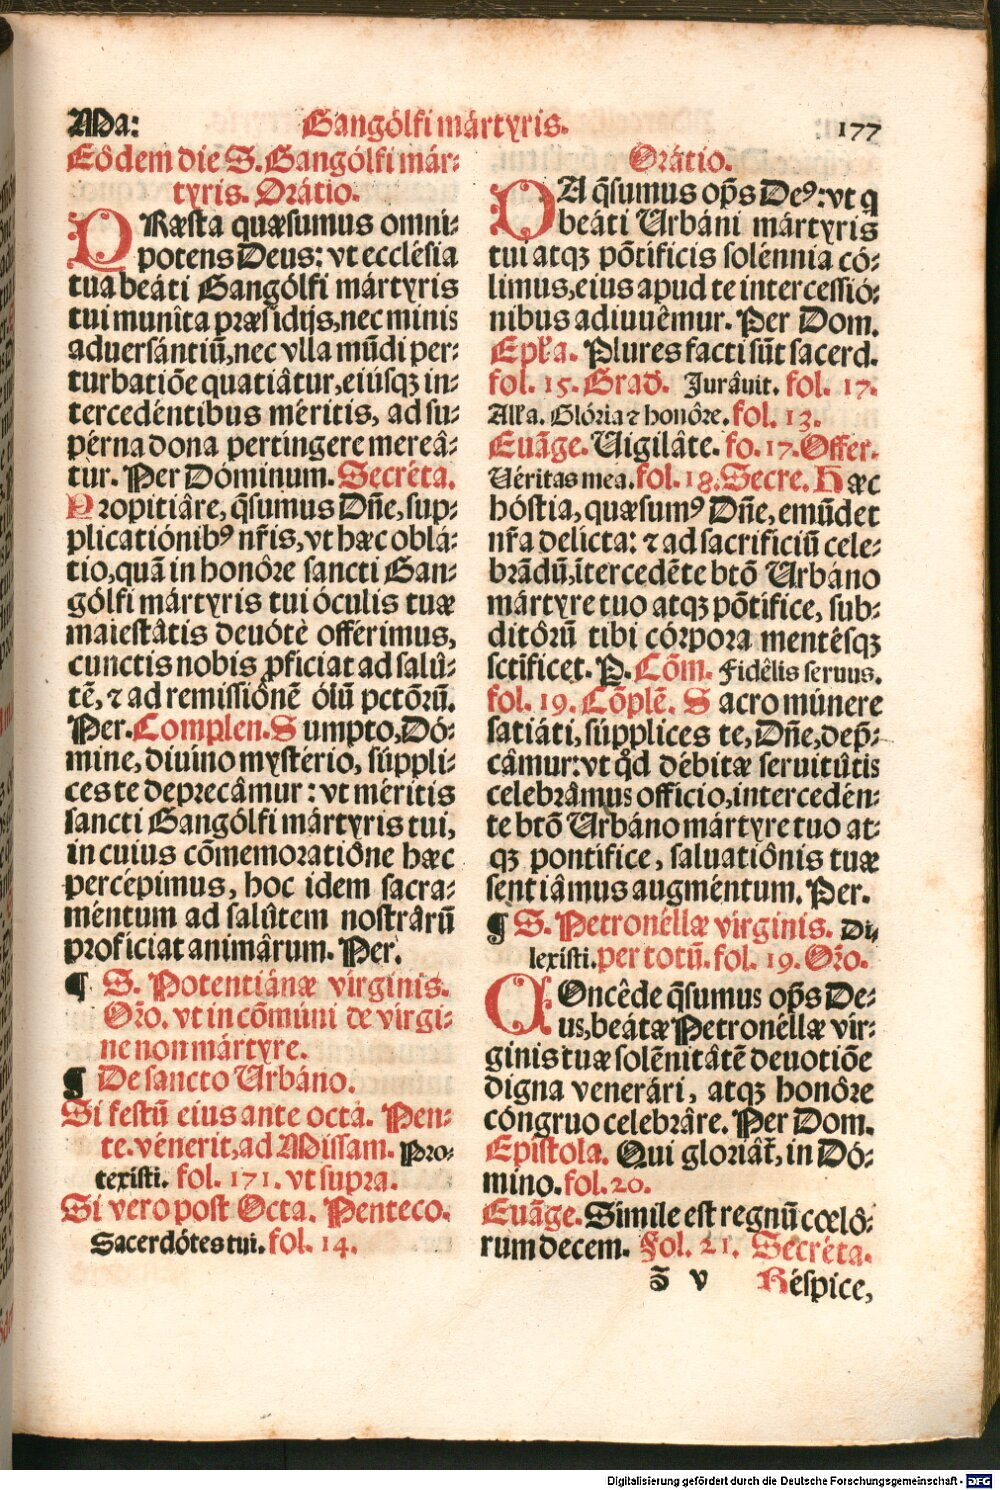 Ma: Gangólfi mártyris. 177
Eôdem die S. Gangólfi már⸗
tyris. Orátio.
PRæsta quæsumus omni⸗
potens Deus: vt ecclésia
tua beáti Gangólfi mártyris
tui munîta præsidijs, nec minis
adversántiũ, nec vlla mũdi per⸗
turbatiõe quatiâtur, eiúsqꝫ in⸗
tercedéntibus méritis, ad su⸗
pérna dona pertingere mereâ⸗
tur. Per Dóminum. Secréta.
Propitiâre, q̃sumus Dñe, sup⸗
plicatiónibꝰ nr̃is, vt hæc oblá⸗
tio, quã in honôre sancti Gan⸗
gólfi mártyris tui óculis tuæ
maiestâtis deuótè offérimus,
cunctis nobis ꝓficiat ad salû⸗
tẽ, ⁊ ad remissiônẽ óĩũ pctõrũ.
Per. Complen. Sumpto, Dó⸗
mine, diuino mystério, súppli⸗
ces te deprecâmur: vt méritis
sancti Gangólfi mártyris tui,
in cuius cõmemoratiône hæc
percépimus, hoc idem sacra⸗
méntum ad salûtem nostrárũ
proficiat animârum. Per.
¶ S. Potentiánæ virginis.
Oro. vt in cõmúni de virgi⸗
ne non mártyre.
¶ De sancto Urbáno.
Si festũ eius ante octa. Pen⸗
te. vénerit, ad Missam. Pro⸗
texisti. fol. 171. vt supra.
Si vero post Octa. Penteco.
Sacerdótes tui. fol. 14.
Orátio.
DA q̃sumus op̃s Deꝰ: vt q
beáti Urbáni mártyris
tui atqꝫ põtificis solénnia có⸗
limus, eius apud te intercessió⸗
nibus adiuuêmur. Per Dom.
Epl̃a. Plures facti sũt sacerd.
fol. 15. Grad. Jurâuit. fol. 17.
Alľa. Glória ⁊ honôre. fol. 13.
Euãge. Uigilâte. fo. 17. Offer.
Véritas mea. fol. 18. Secre. Hæc
hóstia, quæsumꝰ Dñe, emũdet
nr̃a delicta: ⁊ ad sacrificiũ cele⸗
brãdũ, ĩtercedẽte btõ Urbáno
mártyre tuo atqꝫ põtifice, sub⸗
ditôrũ tibi córpora mentésqꝫ
sctĩficet. P. Cõm. Fidêlis seruus.
fol. 19. Cõplẽ. Sacro múnere
satiáti, súpplices te, Dñe, dep̃⸗
câmur: vt qd̃ débitæ seruitûtis
celebrâmus officio, intercedén⸗
te btõ Urbáno mártyre tuo at⸗
qꝫ pontífice, saluatiônis tuæ
sentiâmus augméntum. Per.
¶ S. Petronéllæ virginis. Di⸗
lexisti. per totũ. fol. 19. Oro.
COncêde q̃sumus op̃s De⸗
us, beátæ Petronéllæ vir⸗
ginis tuæ solẽnitâtẽ deuotiõe
digna venerári, atqꝫ honôre
cóngruo celebrâre. Per Dom.
Epístola. Qui gloriât̃, in Dó⸗
mino. fol. 20.
Euãge. Simile est regnũ cœló⸗
rum decem. Fol. 21. Secréta.
z̃ v Réspice,
Digitalisierung gefördert durch die Deutsche Forschungsgemeinschaft - DFG